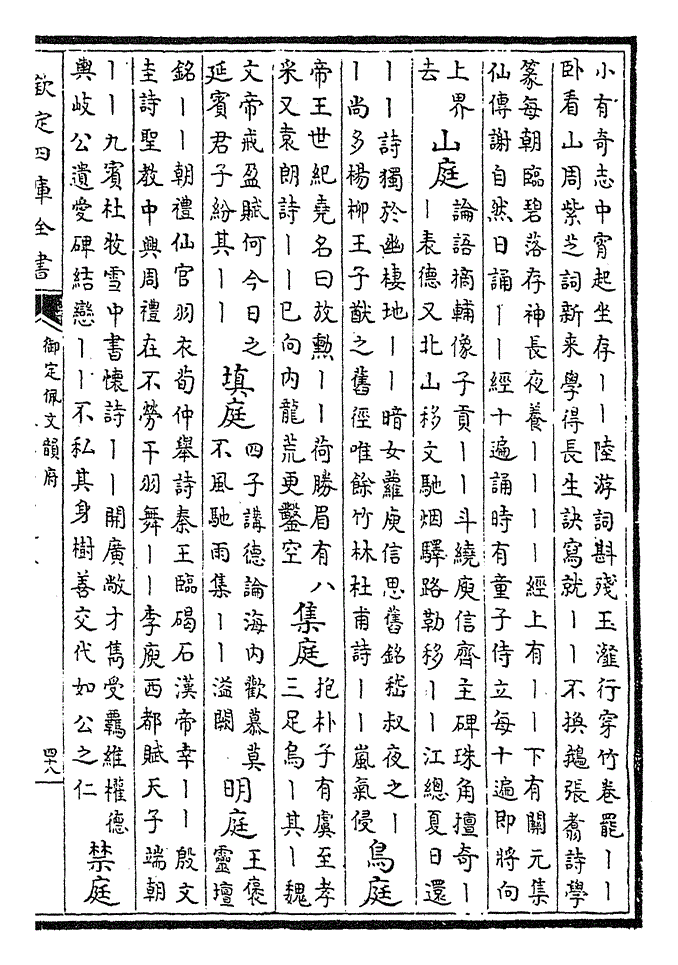 小有奇志中宵起坐存丨丨陸游詞斟殘玉瀣行穿竹卷罷丨丨
卧看山周紫芝詞新来學得長生訣寫就丨丨不換鵞張翥詩學
篆每朝臨碧落存神長夜養丨丨丨丨經上有丨丨下有關元集
仙傳謝自然日誦丨丨經十遍誦時有童子侍立每十遍即將向
上界
去
山庭
論語摘輔像子貢丨丨斗繞庾信齊主碑珠角擅奇丨
丨表德又北山移文馳烟驛路勒移丨丨江總夏日還
丨丨詩獨於幽棲地丨丨暗女蘿庾信思舊銘嵇叔夜之丨
丨尚多楊柳王子猷之舊徑唯餘竹林杜甫詩丨丨嵐氣侵
鳥庭
帝王世紀堯名曰放勲丨丨荷勝眉有八
采又袁朗詩丨丨已向内龍荒更鑿空
集庭
抱朴子有虞至孝
三足烏丨其丨魏
文帝戒盈賦何今日之
延賓君子紛其丨丨
填庭
四子講德論海内歡慕莫
不風馳雨集丨丨溢闕
明庭
王褒
靈壇
銘丨丨朝禮仙官羽衣荀仲舉詩秦王臨碣石漢帝幸丨丨殷文
圭詩聖教中興周禮在不勞干羽舞丨丨李庾西都賦天子端朝
丨丨九賓杜牧雪中書懷詩丨丨開廣敞才雋受羈維權德
輿岐公遺愛碑結戀丨丨不私其身樹善交代如公之仁
禁庭
欽定四庫全書
御定佩文韻府
四十八